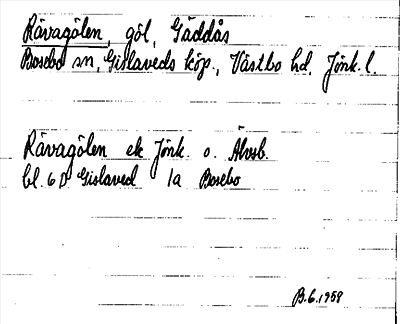 Rävagölen, göl, Gäddås
Bosebo sn, Gislaveds köp., Västbo hd, Jönk. l.
Rävagölen ek Jönk. o. Älvsb.
bl. 6 D Gislaved 1a Bosebo
B.G. 1958